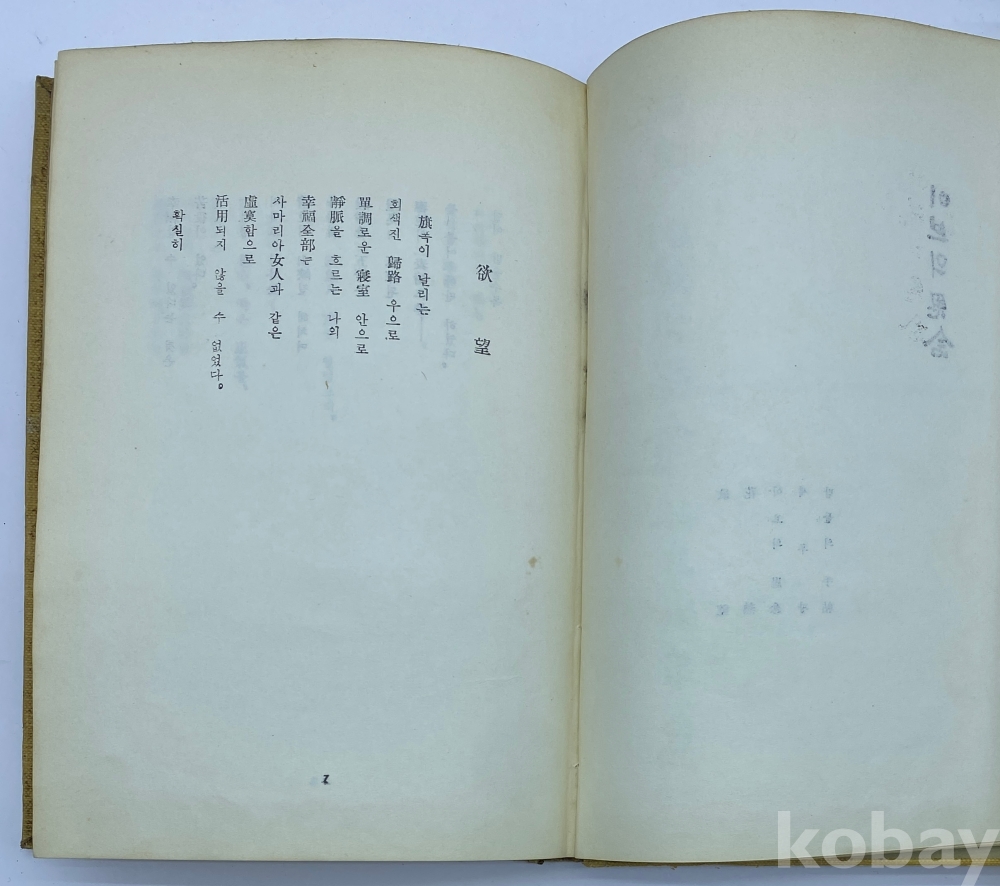 欲望
旗폭이 날리는
회색진 歸路 우으로
單調로운 寢室 안으로
靜脈을 흐르는 나의
幸福全部는
사마리아女人과 같은
虛寞함으로
活用되지 않을 수 없었다。
확실히
7
kobay